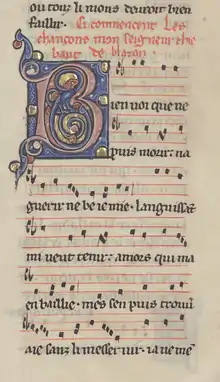 ou tout li mons deuroit bien
faillir. Ci commencent Les
chançons mon seigneur thie
baut de blazon.
Bien uoi que ne
puis morir. na
guerir ne be ie mie. languissāt
mi veut tenir. amors qui ma
en baillie. mes sen puis trouu